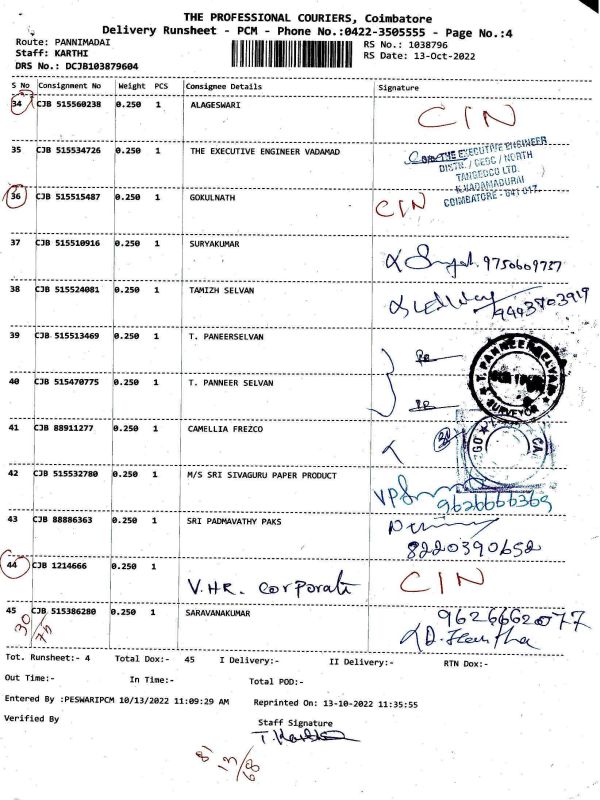 THE PROFESSIONAL COURIERS, Coimbatore
Delivery Runsheet - PCM - Phone No.:0422-3505555 - Page No.:4
Route: PANNIMADAI
RS No.: 1038796
Staff: KARTHI
RS Date: 13-Oct-2022
DRS No.: DCJB103879604
S No Consignment No Weight PCS Consignee Details Signature
34 CJB 515560238 0.250 1 ALAGESWARI CIN
35 CJB 515534726 0.250 1 THE EXECUTIVE ENGINEER VADAMAD
THE EXECUTIVE ENGINEER
DISTN. / CEDC / NORTH
TANGEDCO LTD.
COIMBATORE - 641 017.
36 CJB 515515487 0.250 1 GOKULNATH CIN
37 CJB 515510916 0.250 1 SURYAKUMAR
9750609727
38 CJB 515524081 0.250 1 TAMIZH SELVAN
9443703919
39 CJB 515513469 0.250 1 T. PANEERSELVAN
T. PANNEERSELVAN
SURVEYOR
40 CJB 515470775 0.250 1 T. PANNEER SELVAN
41 CJB 88911277 0.250 1 CAMELLIA FREZCO
42 CJB 515532780 0.250 1 M/S SRI SIVAGURU PAPER PRODUCT
9626666369
43 CJB 88886363 0.250 1 SRI PADMAVATHY PAKS
8220390652
44 CJB 1214666 0.250 1 V.HR. Corporate CIN
45 CJB 515386280 0.250 1 SARAVANAKUMAR
9626662077
30/75
Tot. Runsheet:- 4 Total Dox:- 45 I Delivery:- II Delivery:- RTN Dox:-
Out Time:- In Time:- Total POD:-
Entered By :PESWARIPCM 10/13/2022 11:09:29 AM Reprinted On: 13-10-2022 11:35:55
Verified By Staff Signature